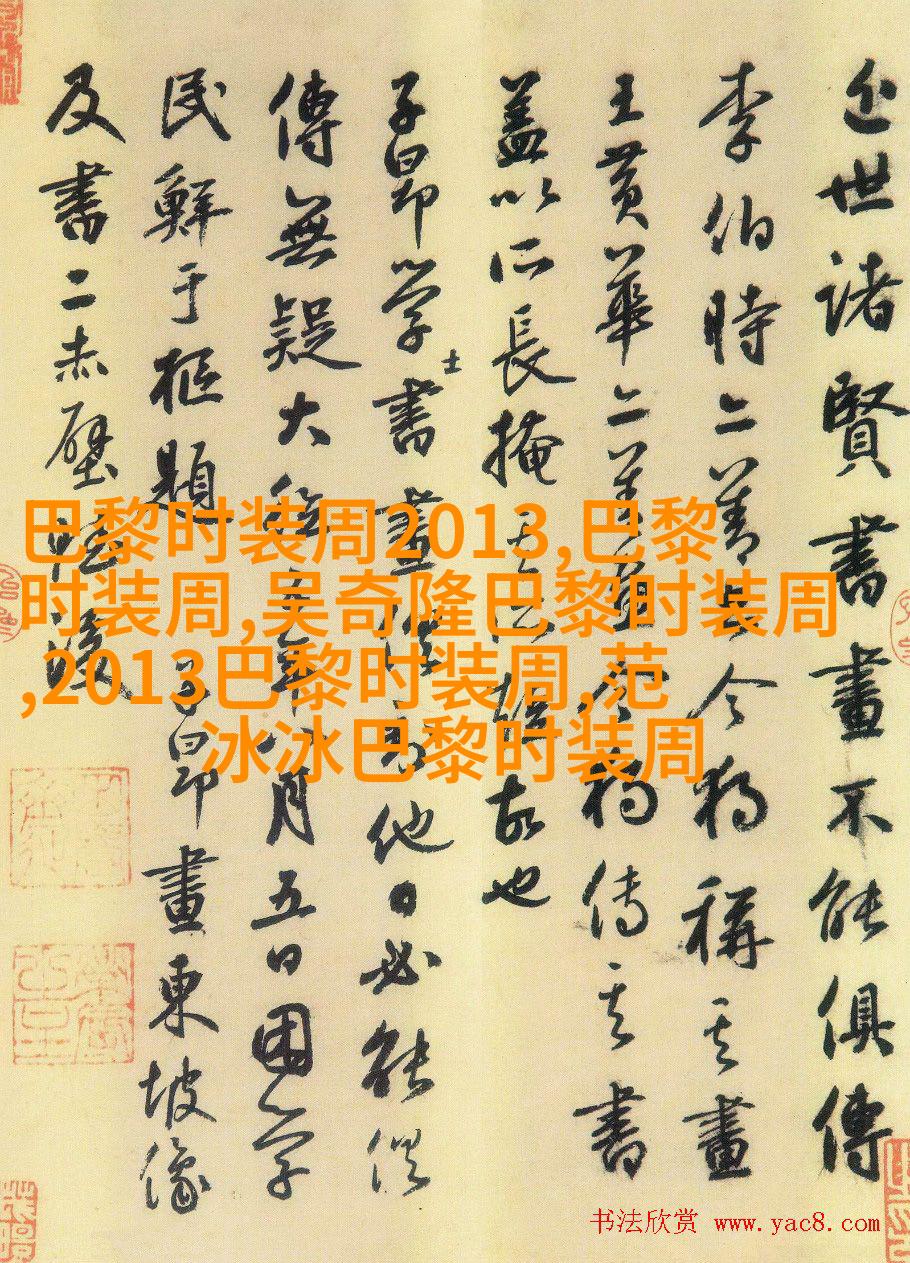 近世诸賢書畫不能俱傳
李伯時二者兵今獨稱其畫
王黄華二者
獨傳其書
蓋以所長掩
故也
子昂学士書畫
他日必能俱
傳無疑大
年八月五日困学
民鮮于樞題
子昂畫東坡像
及書二赤壁
巴黎时装周2013,巴黎
时装周,吴奇隆巴黎时装周
,2013巴黎时装周,范
冰冰巴黎时装周
书法欣赏 www.yac8.com